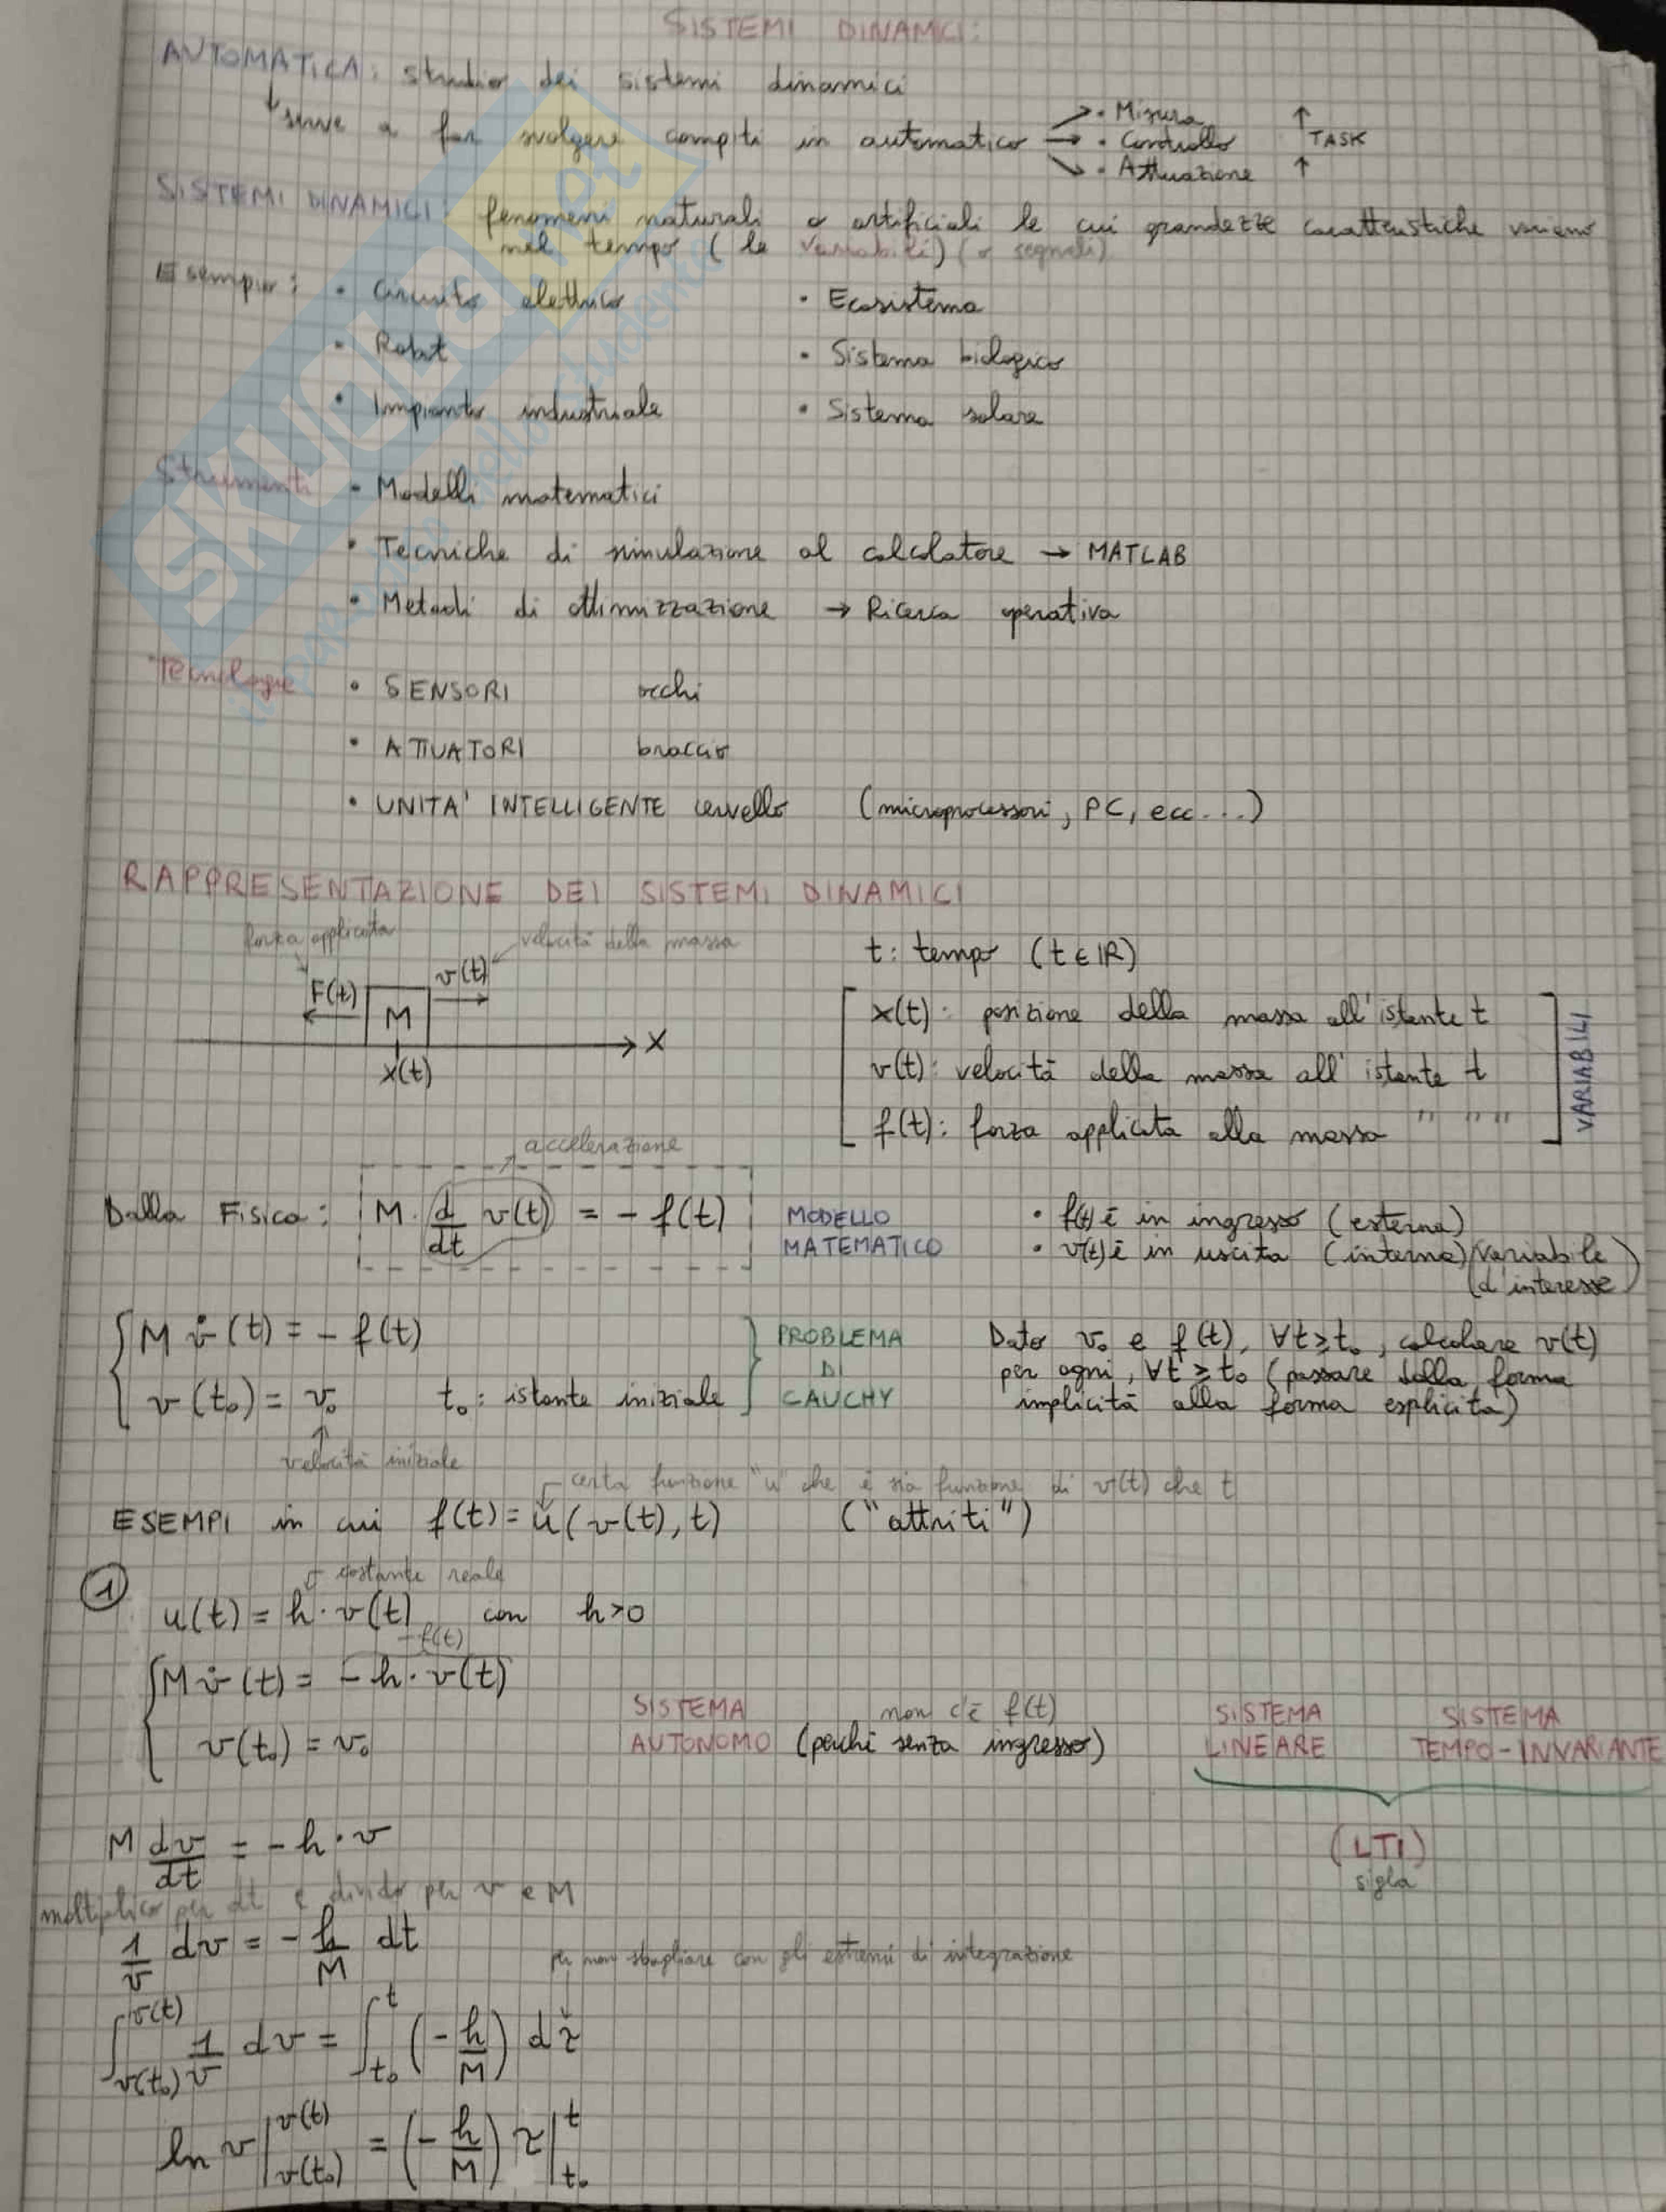 SISTEMI DINAMICI:
AUTOMATICA: studio dei sistemi dinamici
serve a far svolgere compiti in automatico → • Misura ↑
→ • Controllo TASK
→ • Attuazione ↑
SISTEMI DINAMICI: fenomeni naturali o artificiali le cui grandezze caratteristiche variano
nel tempo (le variabili) (o segnali)
Esempio: • Circuito elettrico • Ecosistema
• Robot • Sistema biologico
• Impianto industriale • Sistema solare
Strumenti • Modelli matematici
• Tecniche di simulazione al calcolatore → MATLAB
• Metodi di ottimizzazione → Ricerca operativa
Tecnologie • SENSORI occhi
• ATTUATORI braccio
• UNITA' INTELLIGENTE cervello (microprocessori, PC, ecc...)
RAPPRESENTAZIONE DEI SISTEMI DINAMICI
forza applicata velocità della massa t: tempo (t ∈ ℝ)
F(t) M v(t) x(t): posizione della massa all'istante t
X v(t): velocità della massa all'istante t
x(t) f(t): forza applicata alla massa " " "
VARIABILI
accelerazione
Dalla Fisica: M · d/dt v(t) = - f(t) MODELLO MATEMATICO • f(t) è in ingresso (esterna)
• v(t) è in uscita (interna) (variabile d'interesse)
{ M v̇(t) = - f(t) PROBLEMA DI CAUCHY Dato v₀ e f(t), ∀t ≥ t₀, calcolare v(t)
v(t₀) = v₀ t₀: istante iniziale per ogni, ∀t ≥ t₀ (passare dalla forma
implicità alla forma esplicita)
velocità iniziale
certa funzione "u" che è sia funzione di v(t) che t
ESEMPI in cui f(t) = u(v(t), t) ("attriti")
① costante reale
u(t) = h · v(t) con h>0
-f(t)
{ M v̇(t) = - h · v(t)
v(t₀) = v₀
SISTEMA AUTONOMO non c'è f(t) (perchè senza ingresso) SISTEMA LINEARE SISTEMA TEMPO-INVARIANTE
(LTI)
sigla
M dv/dt = - h · v
moltiplico per dt e divido per v e M
1/v dv = - h/M dt
per non sbagliare con gli estremi di integrazione
∫_{v(t₀)}^{v(t)} 1/v dv = ∫_{t₀}^{t} (- h/M) dτ
ln v |_{v(t₀)}^{v(t)} = (- h/M) τ |_{t₀}^{t}
SKUOLA.net
il paradiso dello studente